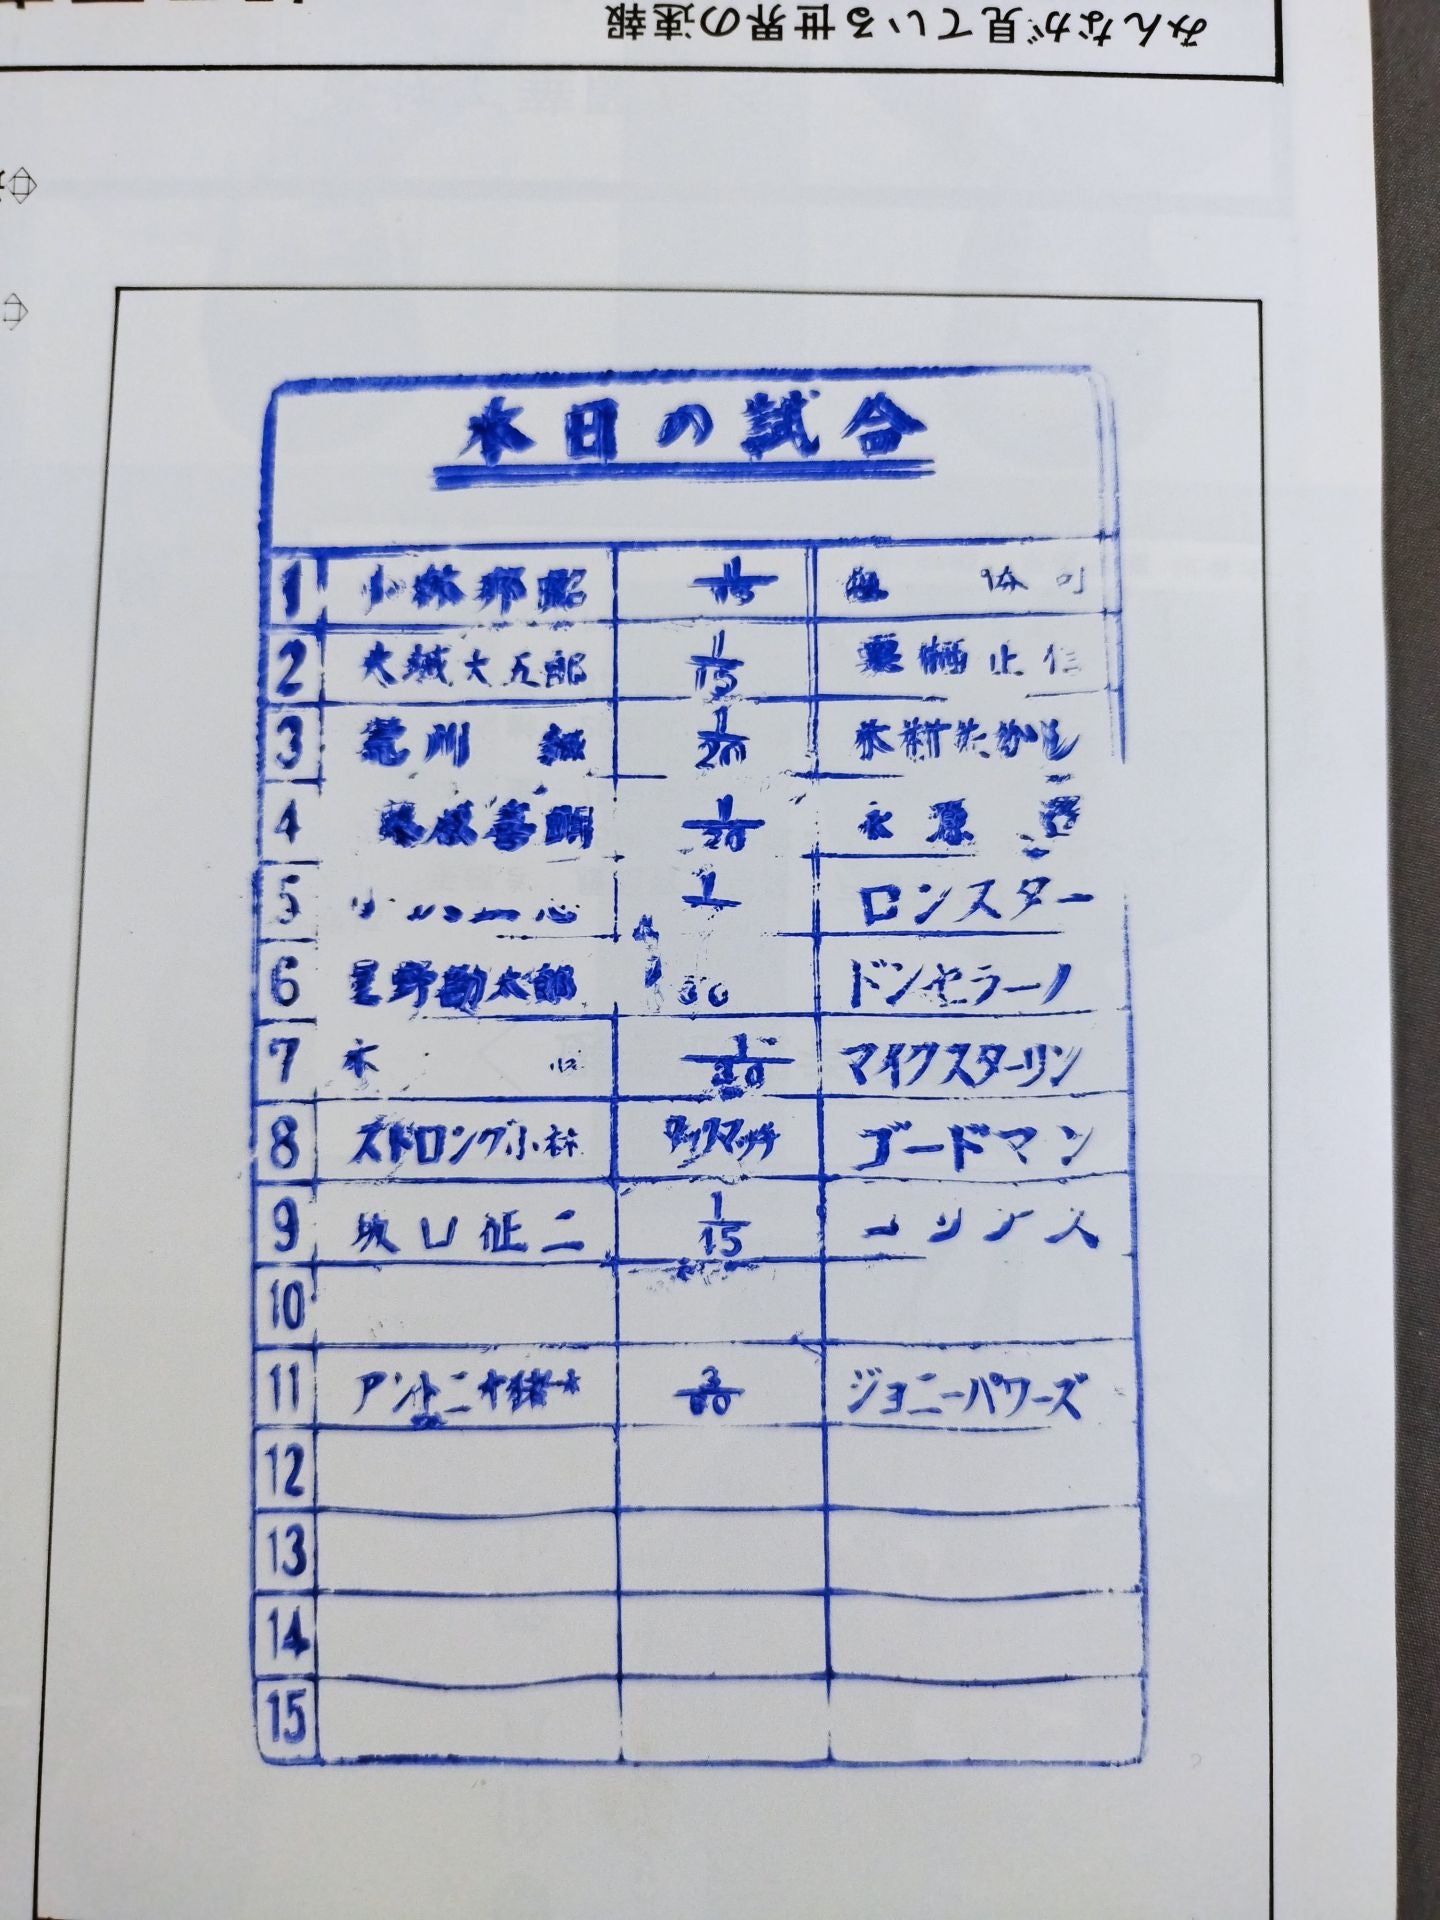 みんなが見ている世界の速報
本日の試合
1 小林邦昭 1/15
2 大城大五郎 1/15 栗栖正伸
3 荒川 誠 1/20 木村たかし
4 藤原喜明 1/20 永原
5 1 ロンスター
6 星野勘太郎 30 ドンセラーノ
7 木 1/30 マイクスターリン
8 ストロング小林 タッグマッチ ゴードマン
9 坂口征二 1/15
10
11 アントニオ猪木 3/60 ジョニーパワーズ
12
13
14
15